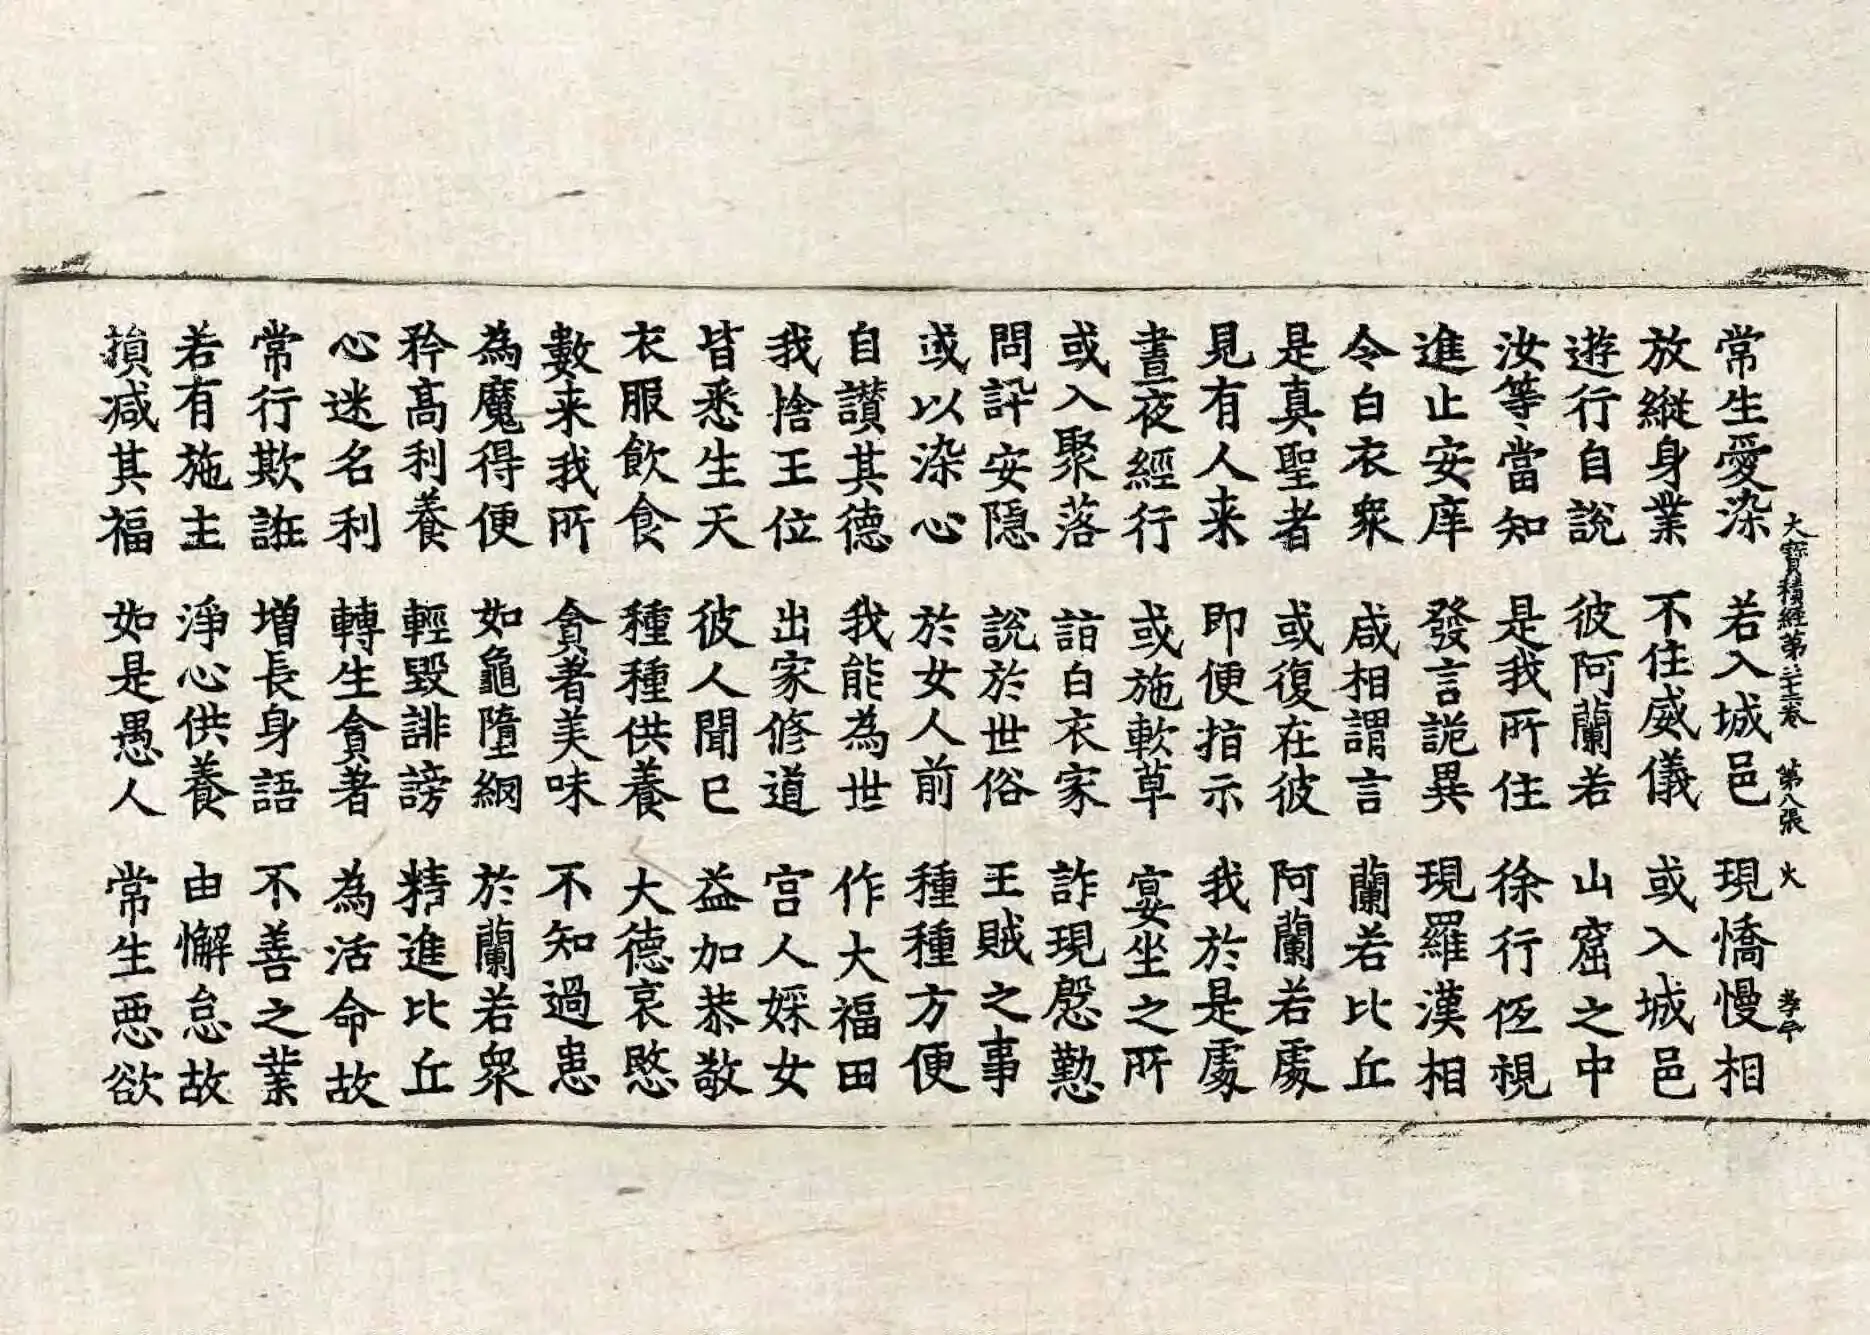 大寶積經第二十二卷 第八張 火 孝平
常生愛染 若入城邑 現憍慢相
放縱身業 不住威儀 或入城邑
遊行自說 彼阿蘭若 山窟之中
汝等當知 是我所住 徐行伍視
進止安庠 發言詭異 現羅漢相
令白衣衆 咸相謂言 蘭若比丘
是真聖者 或復在彼 阿蘭若處
見有人来 即便指示 我於是處
晝夜經行 或施軟草 宴坐之所
或入聚落 詣白衣家 詐現慇懃
問訊安隱 說於世俗 王賊之事
或以染心 於女人前 種種方便
自讃其德 我能為世 作大福田
我捨王位 出家修道 宫人婇女
皆悉生天 彼人聞已 益加恭敬
衣服飲食 種種供養 大德哀愍
數来我所 貪著美味 不知過患
為魔得便 如龜墮網 於蘭若衆
矜高利養 輕毀誹謗 精進比丘
心迷名利 轉生貪著 為活命故
常行欺誑 增長身語 不善之業
若有施主 淨心供養 由懈怠故
損减其福 如是愚人 常生惡欲